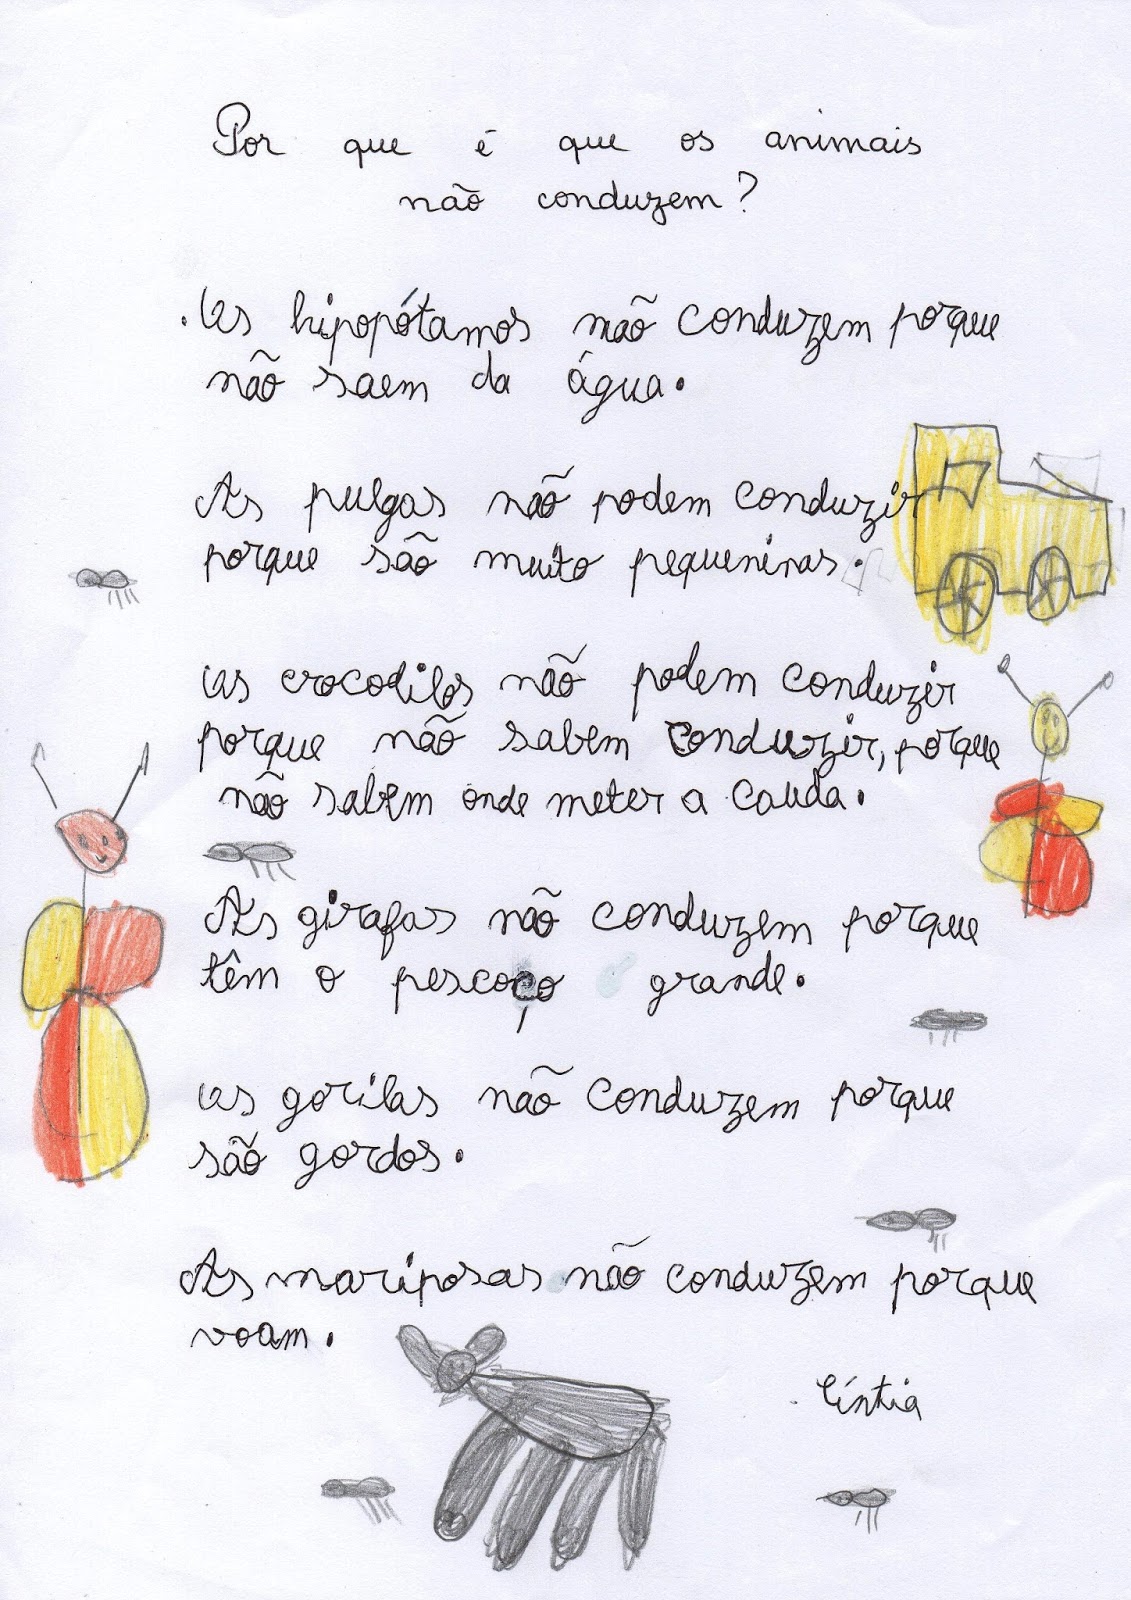 Por que é que os animais
não conduzem?
.Os hipopótamos não conduzem porque
não saem da água.
As pulgas não podem conduzir
porque são muito pequeninas.
Os crocodilos não podem conduzir
porque não sabem conduzir, porque
não sabem onde meter a cauda.
As girafas não conduzem porque
têm o pescoço grande.
Os gorilas não conduzem porque
são gordos.
As mariposas não conduzem porque
voam.
Cíntia